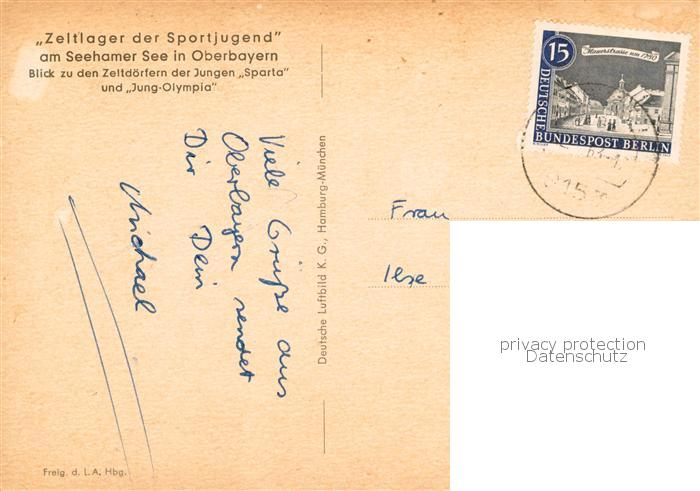 „Zeltlager der Sportjugend"
am Seehamer See in Oberbayern
Blick zu den Zeltdörfern der Jungen „Sparta"
und „Jung-Olympia"
Viele Grüße aus
Oberbayern sendet
Dir Dein
Michael
Freig. d. L. A. Hbg.
Deutsche Luftbild K. G., Hamburg-München
15
Mauerstrasse um 1780
DEUTSCHE
BUNDESPOST BERLIN
Frau
Ilse
privacy protection
Datenschutz